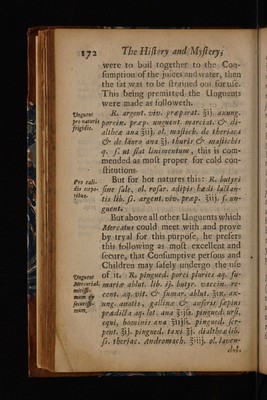 172 The History and Mystery;
were to boil together to the Con-
sumption of the juices and water, then
the fat was to be strained out for use.
This being premitted the Unguents
were made as followeth.
Unguent pro naturis frigidis.
R. argent. viv. præparat. ℥ij. axung.
porcin. præp. unguent. marciat. & di-
altheæ ana ℥iij. ol. mastich. de theriaca
& de lauro ana ℥j. thuris & mastichis
q. s. ut fiat linimentum, this is com-
mended as most proper for cold con-
stitutions.
Pro cali-dis corpo-ribus.
But for hot natures this: R. butyri
sine sale, ol. rosar. adipis hædi lactan-
tis lib. ss. argent. viv. præp. ℥iij. f. un-
guent.
But above all other Unguents which
Mercatus could meet with and prove
by tryal for this purpose, he prefers
this following as most excellent and
secure, that Consumptive persons and
Children may safely undergo the use
Unguent Mercurial. mitissi-mum & securissi-mum,
of it. R. pingued. porci pluries aq. fu-
mariæ ablut. lib. ij. butyr. vaccin. re-
cent. aq. vit. & fumar. ablut.
ung. anatis, gallinæ & anseris sæpius
prædicta aq. lot. ana pingued. ursi,
equi, hominis ana pingued. ser-
pent. ℥ij. pingued. taxi ℥j. dialtheæ lib.
ss. theriac. Andromach. ol. laven-